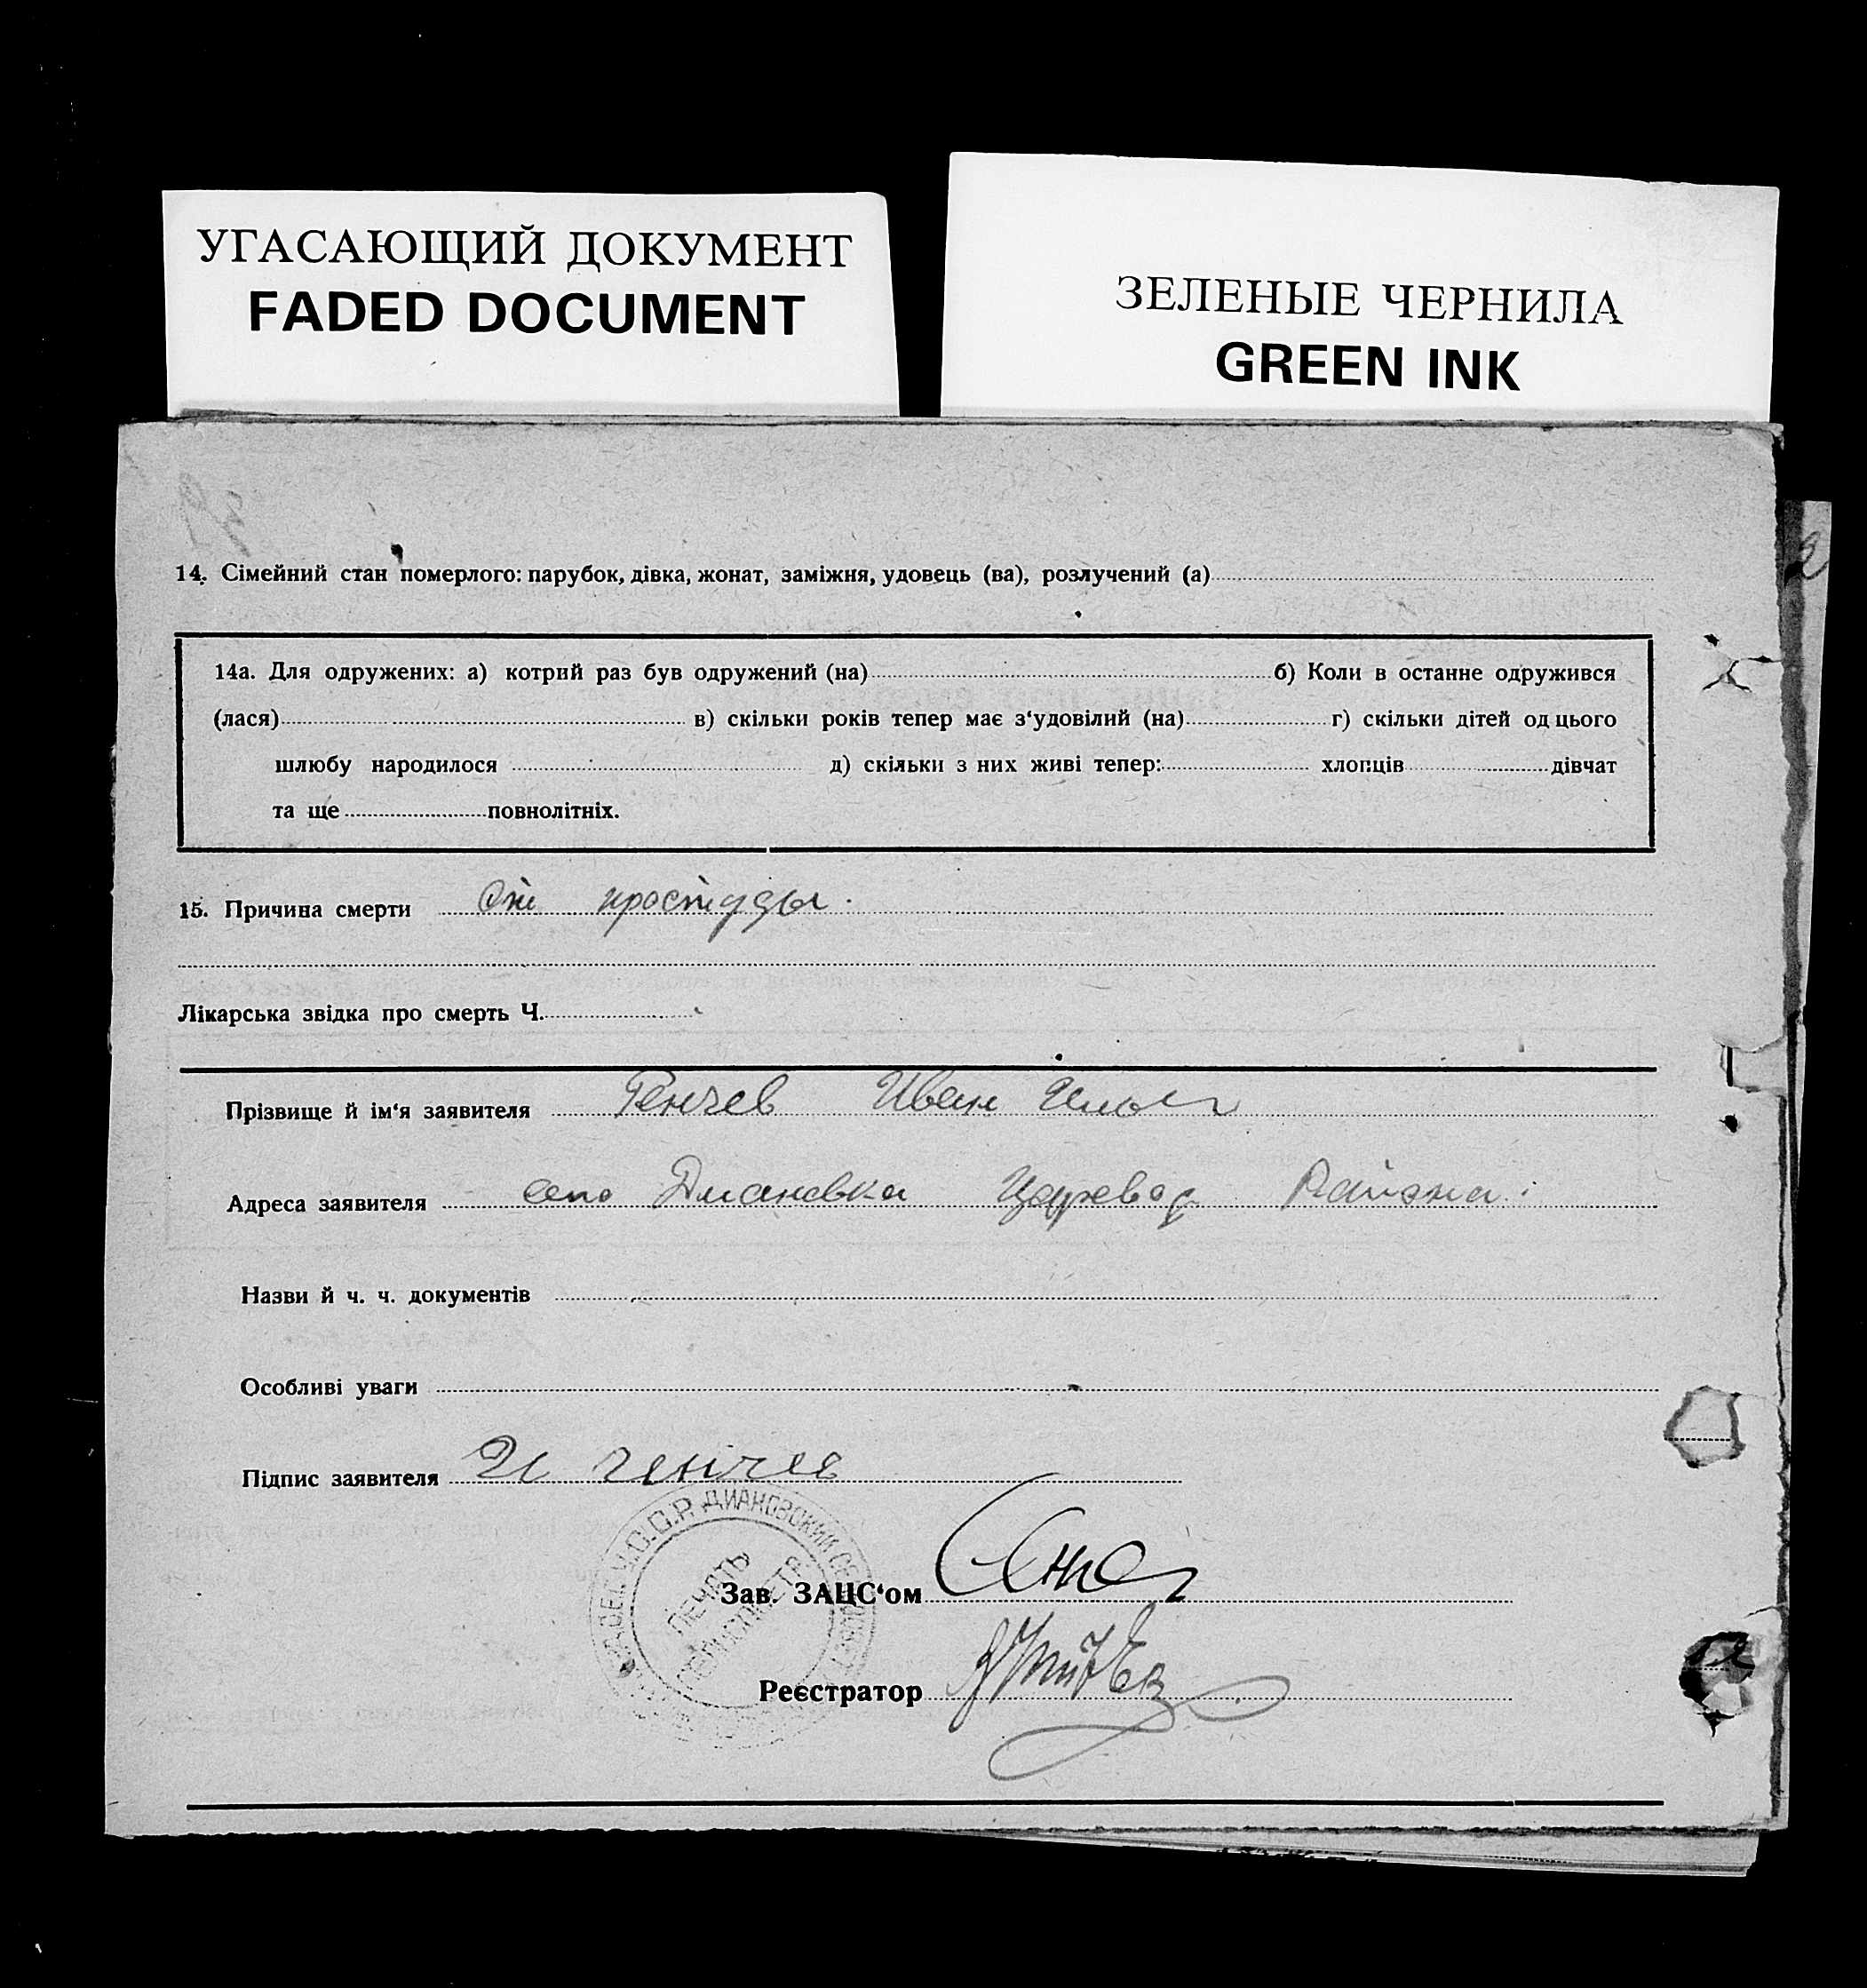 УГАСАЮЩИЙ ДОКУМЕНТ
FADED DOCUMENT
ЗЕЛЕНЫЕ ЧЕРНИЛА
GREEN INK
14. Сімейний стан померлого: парубок, дівка, жонат, заміжня, удовець (ва), розлучений (а)
14а. Для одружених: а) котрий раз був одружений (на) б) Коли в останне одружився
(лася) в) скільки років тепер має з‘удовілий (на) г) скільки дітей од цього
шлюбу народилося д) скільки з них живі тепер: хлопців дівчат
та ще повнолітніх.
15. Причина смерти От простуды.
Лікарська звідка про смерть Ч.
Прізвище й ім‘я заявителя Генчев Иван Ильич
Адреса заявителя село Диановка Царевод Района
Назви й ч. ч. документів
Особливі уваги
Підпис заявителя И Генчев
У.С.С.Р. ДИАНОВСКИЙ
ПЕЧАТЬ
СЕЛЬСОВЕТА
Зав. ЗАЦС‘ом
Реєстратор